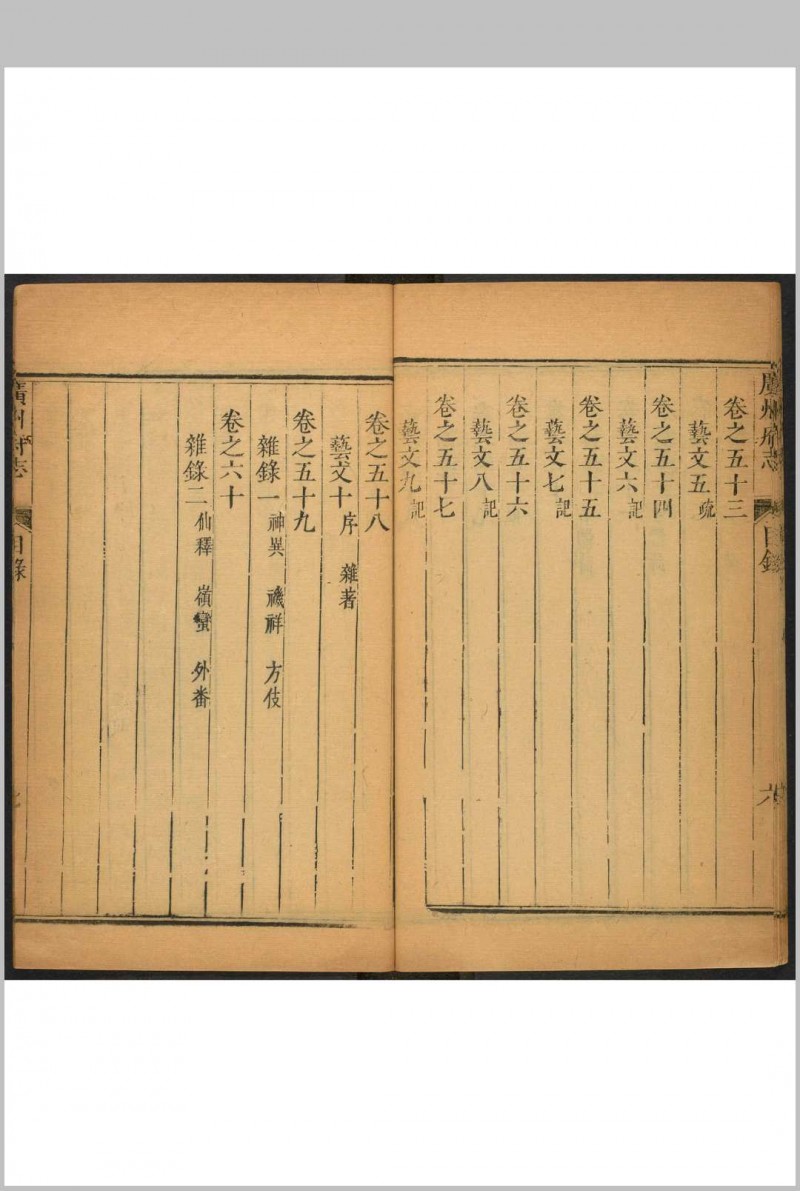 廣州府志
目錄
六
卷之五十三
藝文五 疏
卷之五十四
藝文六 記
卷之五十五
藝文七 記
卷之五十六
藝文八 記
卷之五十七
藝文九 記
卷之五十八
藝文十 序 雜著
卷之五十九
雜錄一 神異 禨祥 方伎
卷之六十
雜錄二 仙釋 嶺蠻 外番
廣州府志
目錄